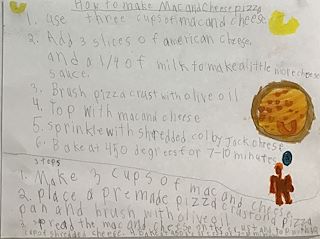 How to make Mac and Cheese pizza
1. use three cups of mac and cheese
2. Add 3 slices of american cheese,
and a 1/4 of milk to make a little more cheese
sauce.
3. Brush pizza crust with olive oil
4. Top with mac and cheese
5. sprinkle with shredded colby Jack cheese
6. Bake at 450 degrees for 7-10 minutes
steps
1. Make 3 cups of mac and cheese
2. place a premade pizza crust on a pizza
pan and brush with olive oil
3. spread the mac and cheese onto crust and top with
cup of shredded cheese.